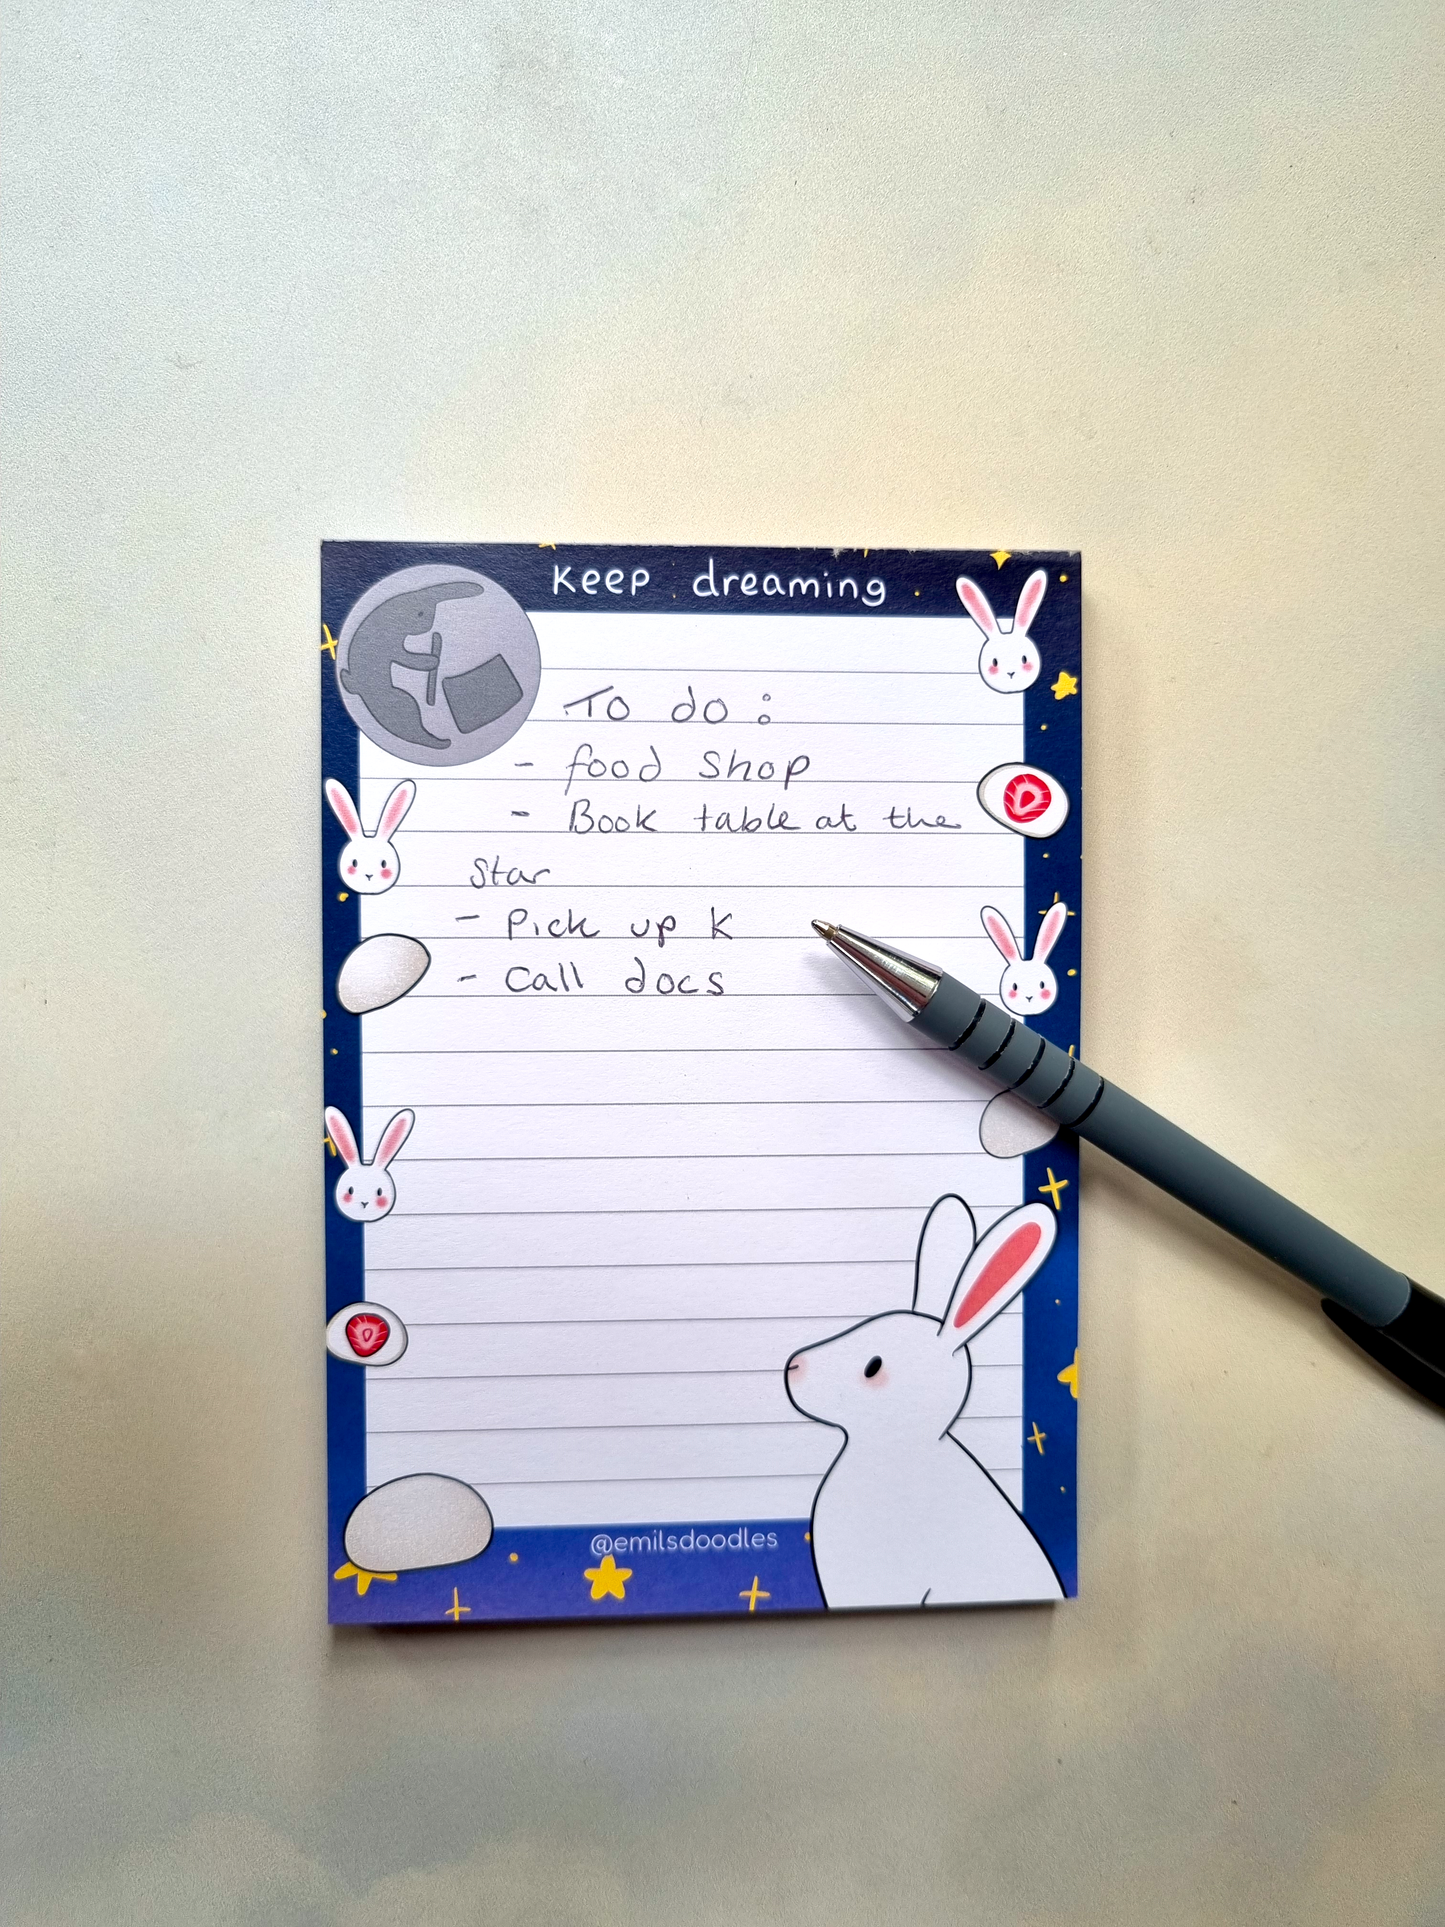 Keep dreaming
To do :
- food shop
- Book table at the
Star
- Pick up K
- Call docs
@emilsdoodles